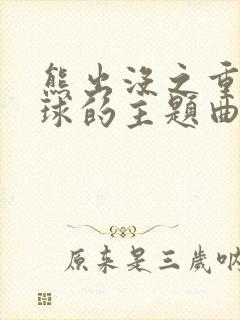 熊出没之重
球的主题曲
原来是三岁呐